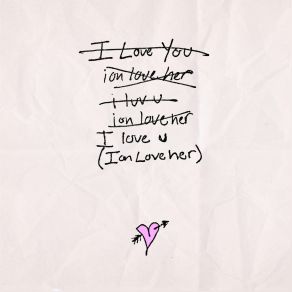 I Love You
ion love her
i luv u
ion love her
I love u
(Ion Love her)